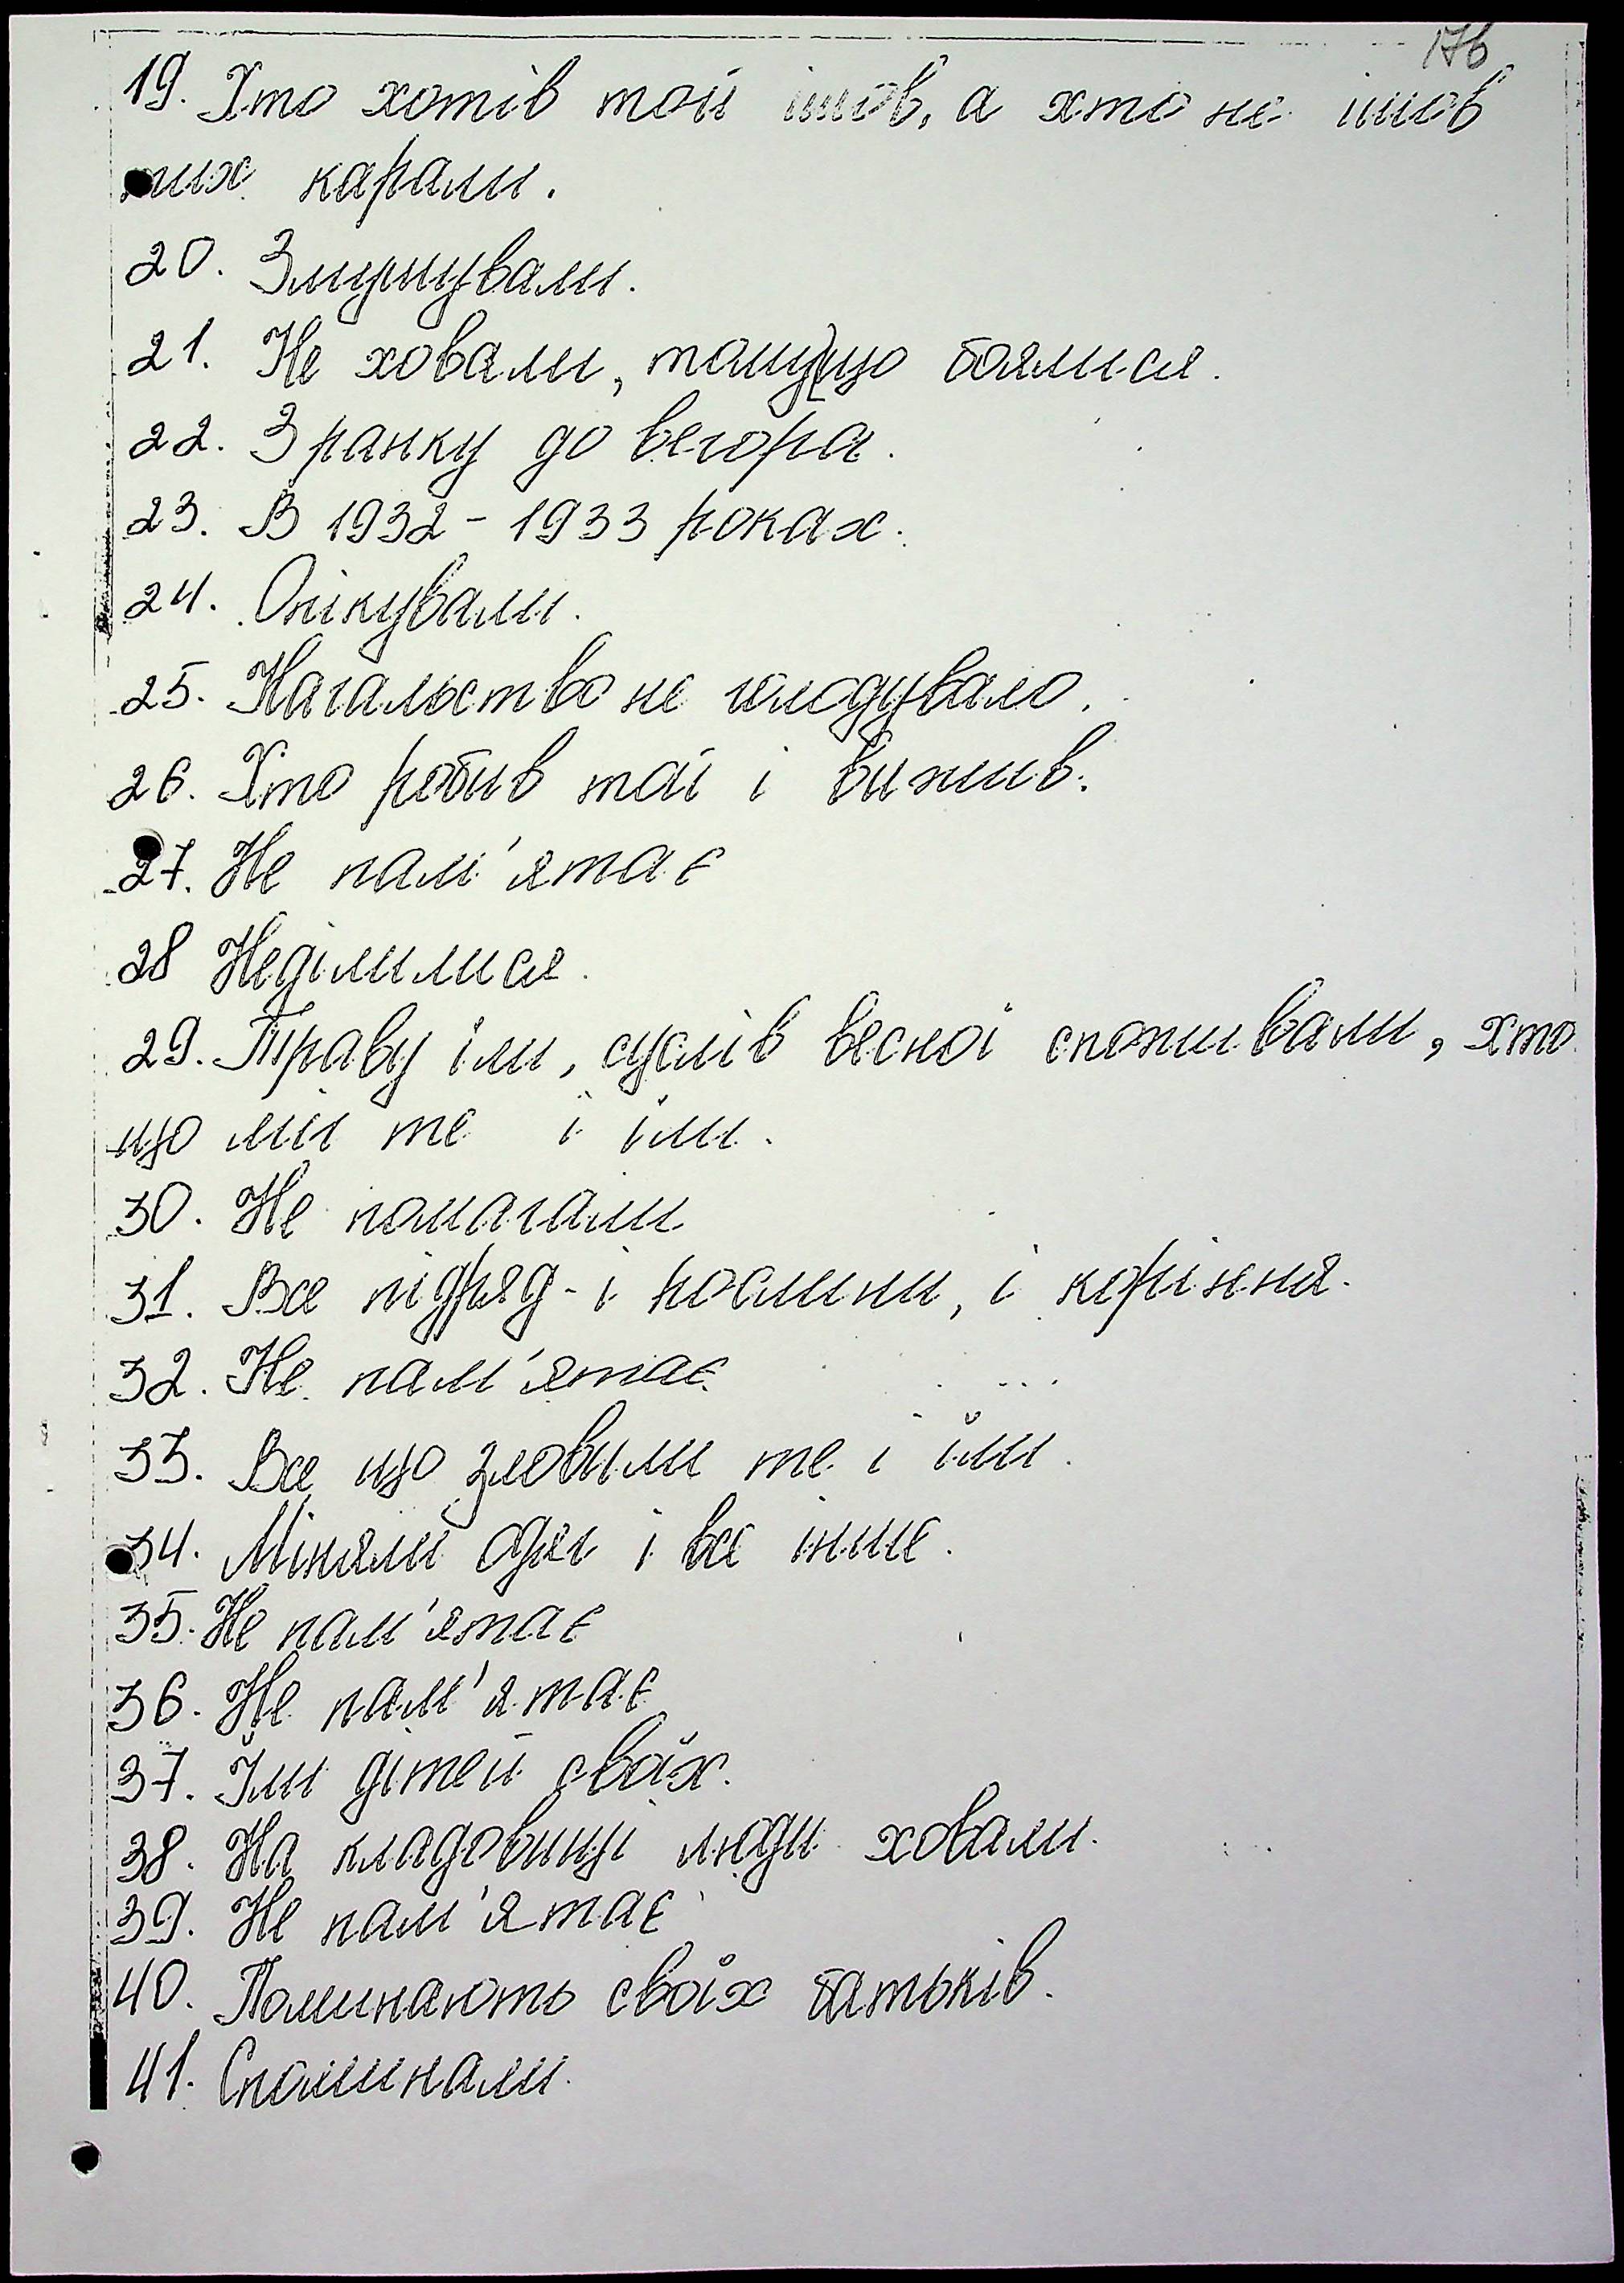 176
19. Хто хотів той ішов, а хто не ішов
тих карали.
20. Змушували.
21. Не ховали, тому що боялися.
22. З ранку до вечора.
23. В 1932 - 1933 роках.
24. Опікували.
25. Начальство не голодувало.
26. Хто робив той і вижив.
27. Не пам'ятає
28 Неділилися.
29. Траву їли, суслів весной споживали, хто
що міг те і їли.
30. Не помагали
31. Все підряд - і рослини, і коріння.
32. Не пам'ятає
33. Все що зловили те і їли.
34. Міняли одяг і все інше.
35. Не пам'ятає
36. Не пам'ятає
37. Їли дітей своїх.
38. На кладовищі люди ховали.
39. Не пам'ятає
40. Поминають своїх батьків.
41. Споминали.